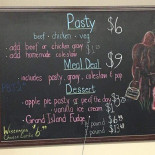 Pasty $6
beef · chicken · veg
· add beef or chicken gravy $1
· add homemade coleslaw
Meal Deal $9
· includes pasty, gravy, coleslaw & pop
Dessert
· apple pie pasty w/ the day $3
· vanilla ice cream $1
· Grand Island Fudge
pound $6
pound $12